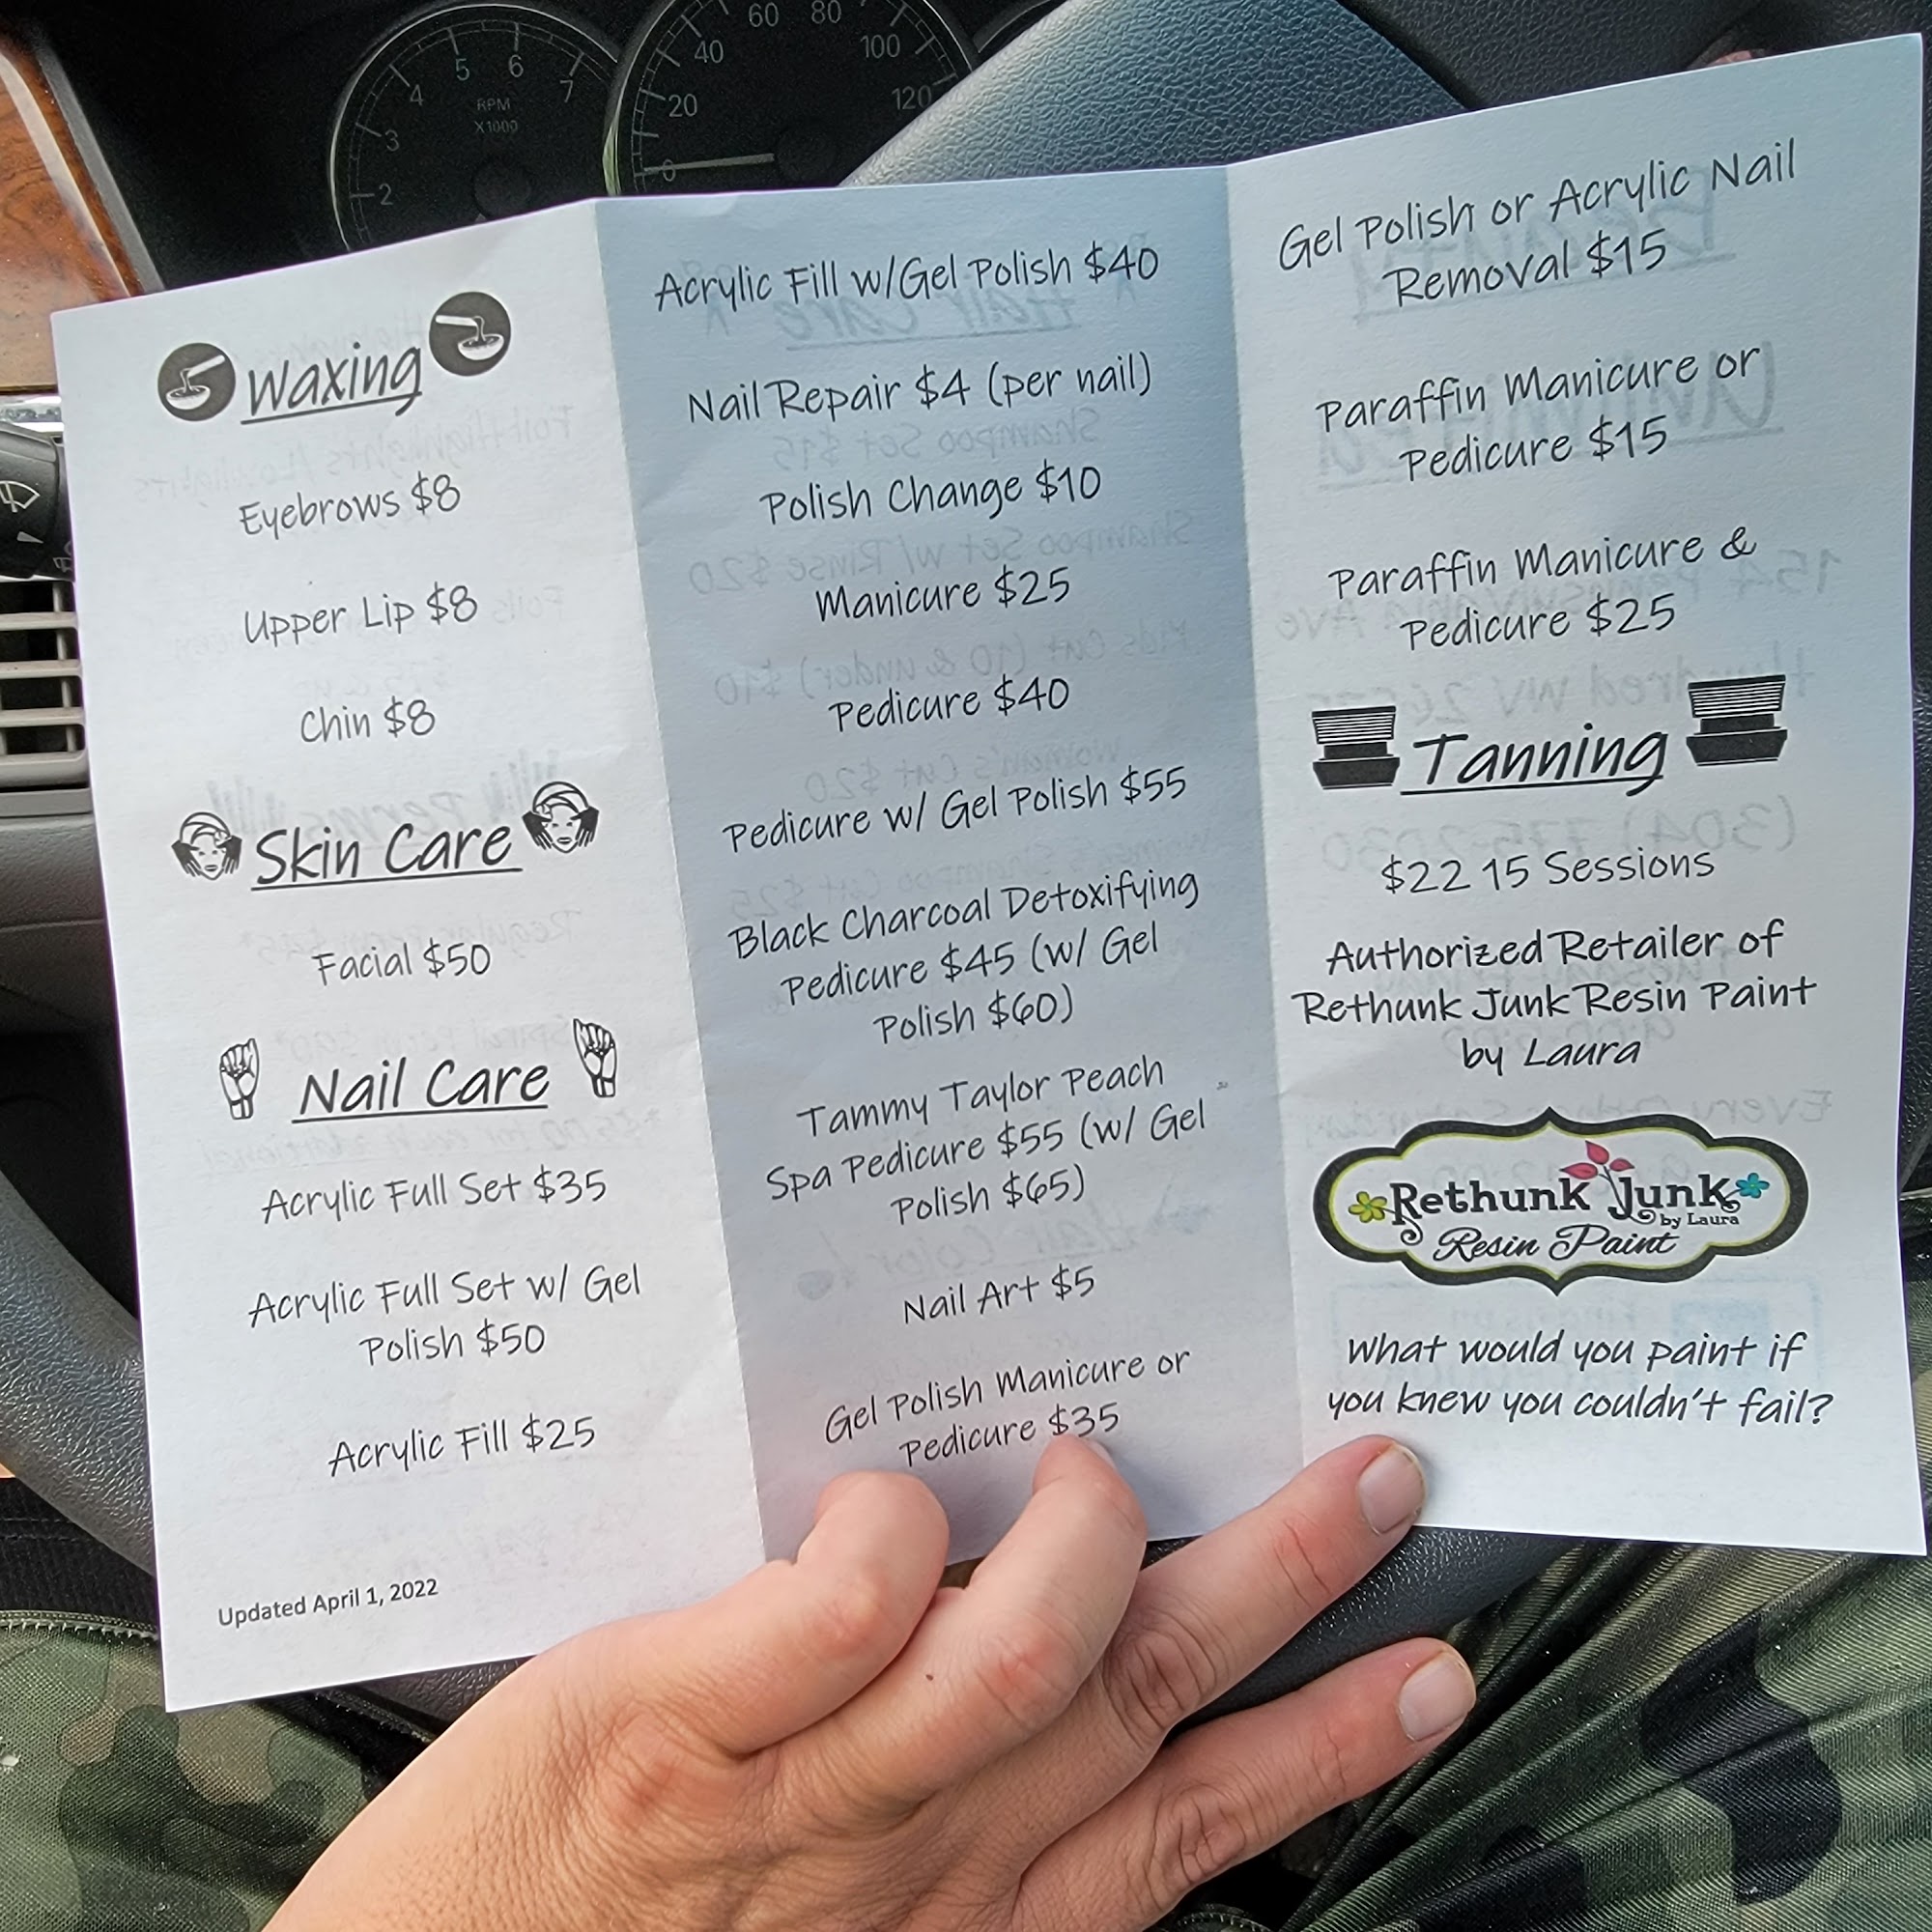 5 6
4 7
3
2
RPM
X1000
60 80
40 100
20 120
0
Waxing
Eyebrows $8
Upper Lip $8
Chin $8
Skin Care
Facial $50
Nail Care
Acrylic Full Set $35
Acrylic Full Set w/ Gel
Polish $50
Acrylic Fill $25
Updated April 1, 2022
Acrylic Fill w/Gel Polish $40
Nail Repair $4 (per nail)
Polish Change $10
Manicure $25
Pedicure $40
Pedicure w/ Gel Polish $55
Black Charcoal Detoxifying
Pedicure $45 (w/ Gel
Polish $60)
Tammy Taylor Peach
Spa Pedicure $55 (w/ Gel
Polish $65)
Nail Art $5
Gel Polish Manicure or
Pedicure $35
Gel Polish or Acrylic Nail
Removal $15
Paraffin Manicure or
Pedicure $15
Paraffin Manicure &
Pedicure $25
Tanning
$22 15 Sessions
Authorized Retailer of
Rethunk Junk Resin Paint
by Laura
Rethunk Junk
by Laura
Resin Paint
What would you paint if
you knew you couldn't fail?